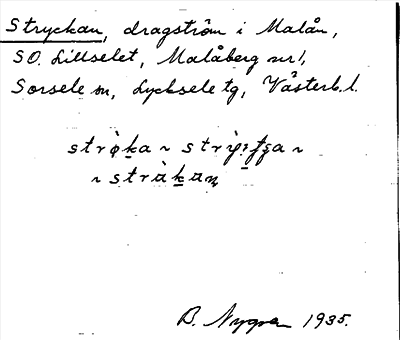 Stryckan, dragström i Malån,
SO. Lillselet, Malåberg nr 1,
Sorsele sn, Lycksele tg, Västerb. l.
~ stràkaɲ
B. Nygren 1935.